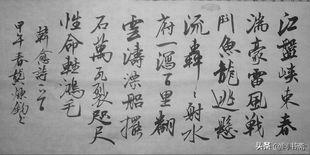 江盤峽束春
湍豪雷風戰
鬥魚龍逃懸
流轟々射水
府一瀉百里翻
雲濤漂船擺
石萬瓦裂咫尺
性命輕鴻毛
韓愈詩一首
甲午春
头条